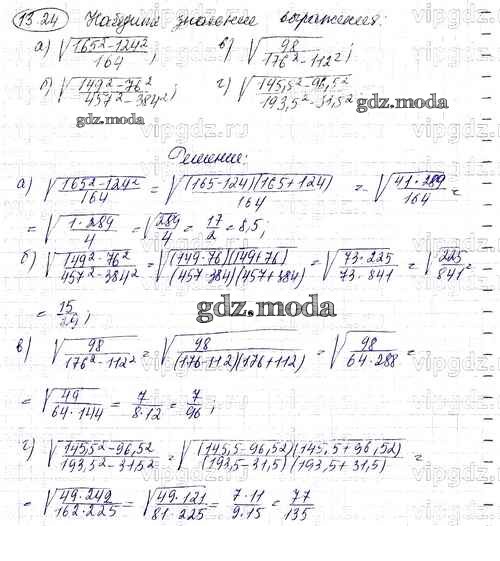 13.24 Найдите значение выражения:
а) √(165²-124²/164); в) √(98/176²-112²);
б) √(149²-76²/457²-384²); г) √(145,5²-96,5²/193,5²-31,5²);
gdz.moda
gdz.moda
Решение:
а) √(165²-124²/164) = √((165-124)(165+124)/164) = √(41·289/164) =
= √(1·289/4) = √(289/4) = 17/2 = 8,5;
б) √(149²-76²/457²-384²) = √((149-76)(149+76)/(457-384)(457+384)) = √(73·225/73·841) = √(225/841) =
= 15/29;
gdz.moda
в) √(98/176²-112²) = √(98/(176-112)(176+112)) = √(98/64·288) =
= √(49/64·144) = 7/8·12 = 7/96;
г) √(145,5²-96,5²/193,5²-31,5²) = √((145,5-96,52)(145,5+96,52)/(193,5-31,5)(193,5+31,5)) =
= √(49·249/162·225) = √(49·121/81·225) = 7·11/9·15 = 77/135
vipgdz.ru